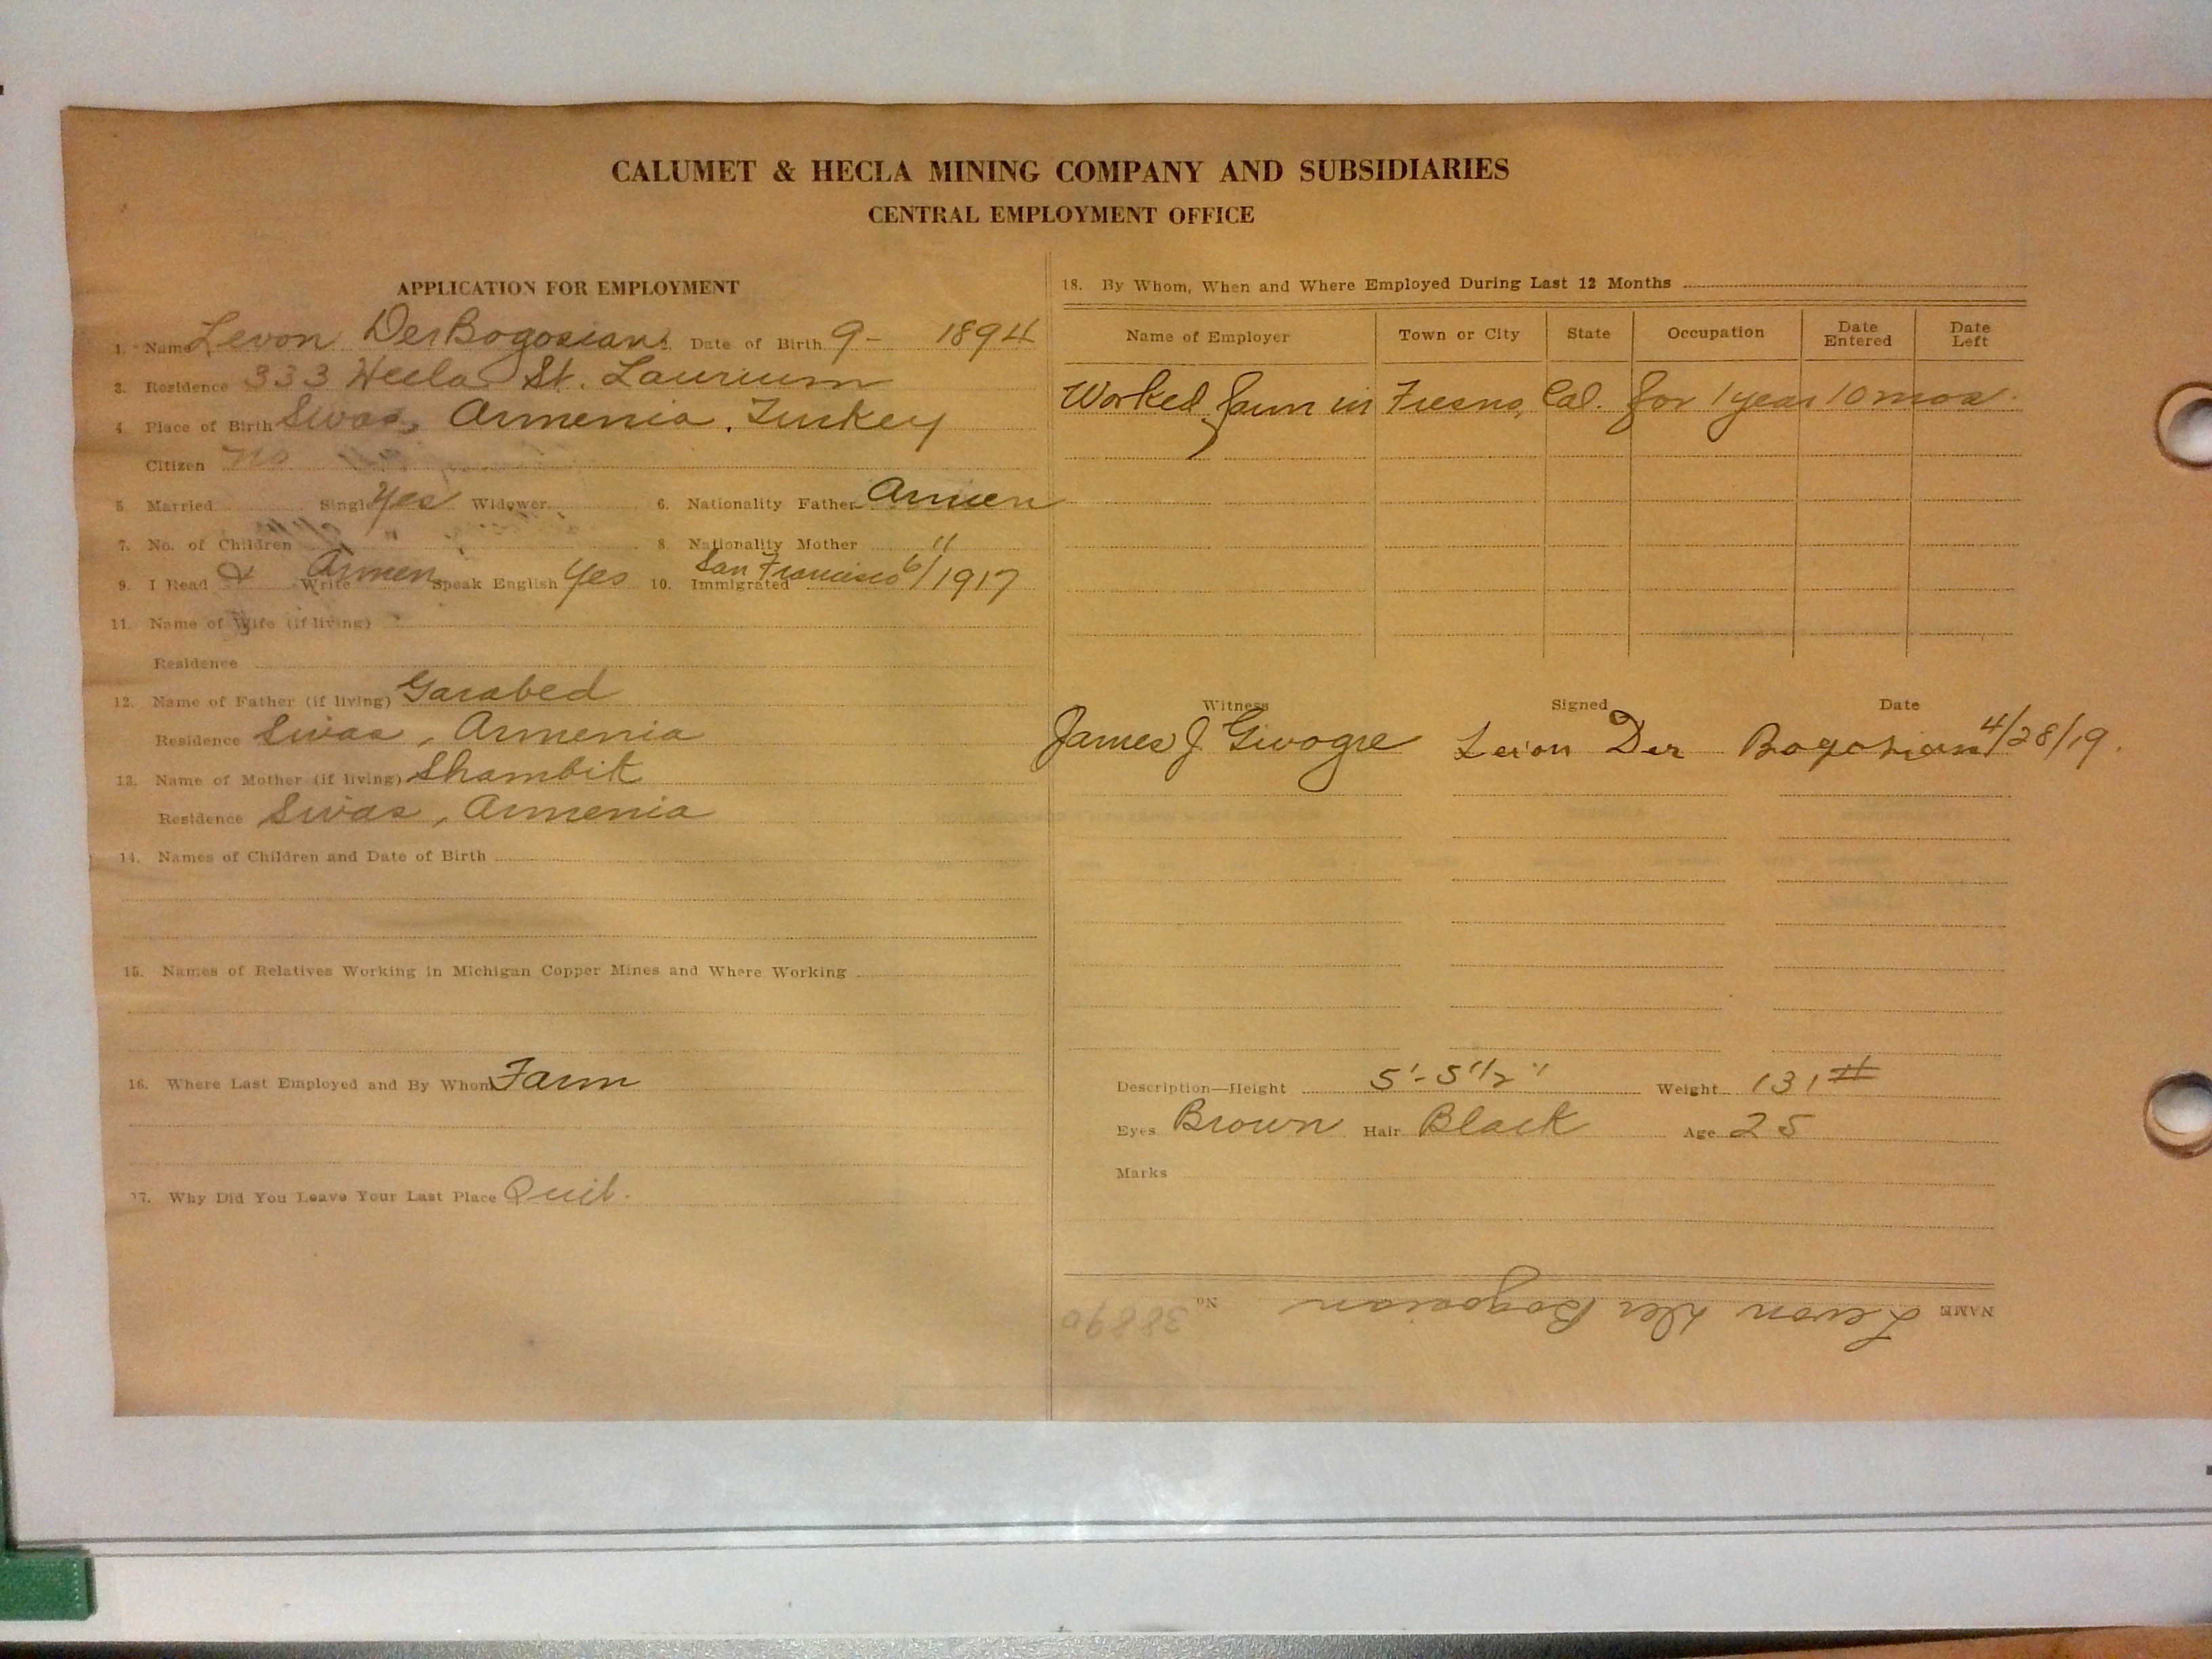 CALUMET & HECLA MINING COMPANY AND SUBSIDIARIES
CENTRAL EMPLOYMENT OFFICE
APPLICATION FOR EMPLOYMENT
1. Name Levon DerBogosian Date of Birth 9- 1894
3. Residence 333 Hecla St. Laurium
4. Place of Birth Sivas, Armenia, Turkey
Citizen No
5. Married Single Yes Widower 6. Nationality Father Armen
7. No. of Children 8. Nationality Mother "
9. I Read & Write Armen Speak English Yes 10. Immigrated San Francisco 6/1917
11. Name of Wife (if living)
Residence
12. Name of Father (if living) Garabed
Residence Sivas, Armenia
13. Name of Mother (if living) Shambik
Residence Sivas, Armenia
14. Names of Children and Date of Birth
15. Names of Relatives Working in Michigan Copper Mines and Where Working
16. Where Last Employed and By Whom Farm
17. Why Did You Leave Your Last Place Quit.
18. By Whom, When and Where Employed During Last 12 Months
Name of Employer Town or City State Occupation Date Entered Date Left
Worked farm in Fresno, Cal. for 1 year 10 mos.
Witness Signed Date
James J Levon Der Bogosian 4/28/19.
Description—Height 5'-5 1/2" Weight 131#
Eyes Brown Hair Black Age 25
Marks
NAME Levon Der Bogosian No. 38890